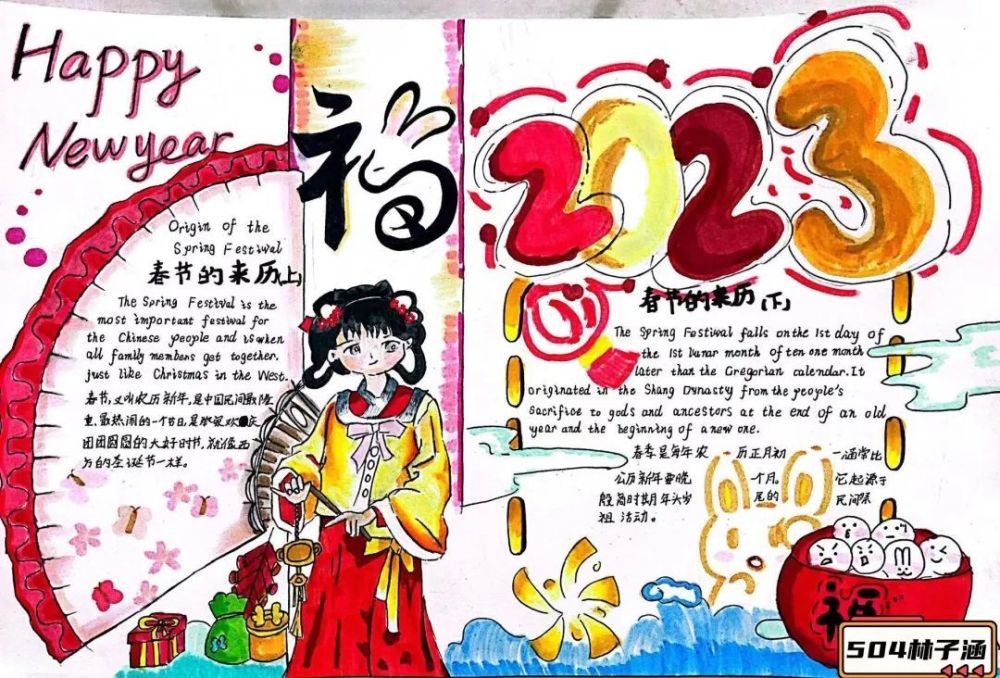 Happy
New year
福
2023
Origin of the
Spring Festival
春节的来历(上)
The Spring Festival is the
most important festival for
the Chinese people and is when
all family members get together.
just like Christmas in the West.
春节,又叫农历新年,是中国民间最隆
重、最热闹的一个节日,是欢庆
团团圆圆的大好时节,就像西
方的圣诞节一样。
春节的来历(下)
The Spring Festival falls on the 1st day of
the 1st lunar month often one month
later than the Gregorian calendar. It
originated in the Shang Dynasty from the people's
sacrifice to gods and ancestors at the end of an old
year and the beginning of a new one.
春季是每年农 历正月初 一通常比
公历新年要晚 个月。 它起源于
殷商时期年头岁 尾的 民间祭
祖 活动。
福
504林子涵